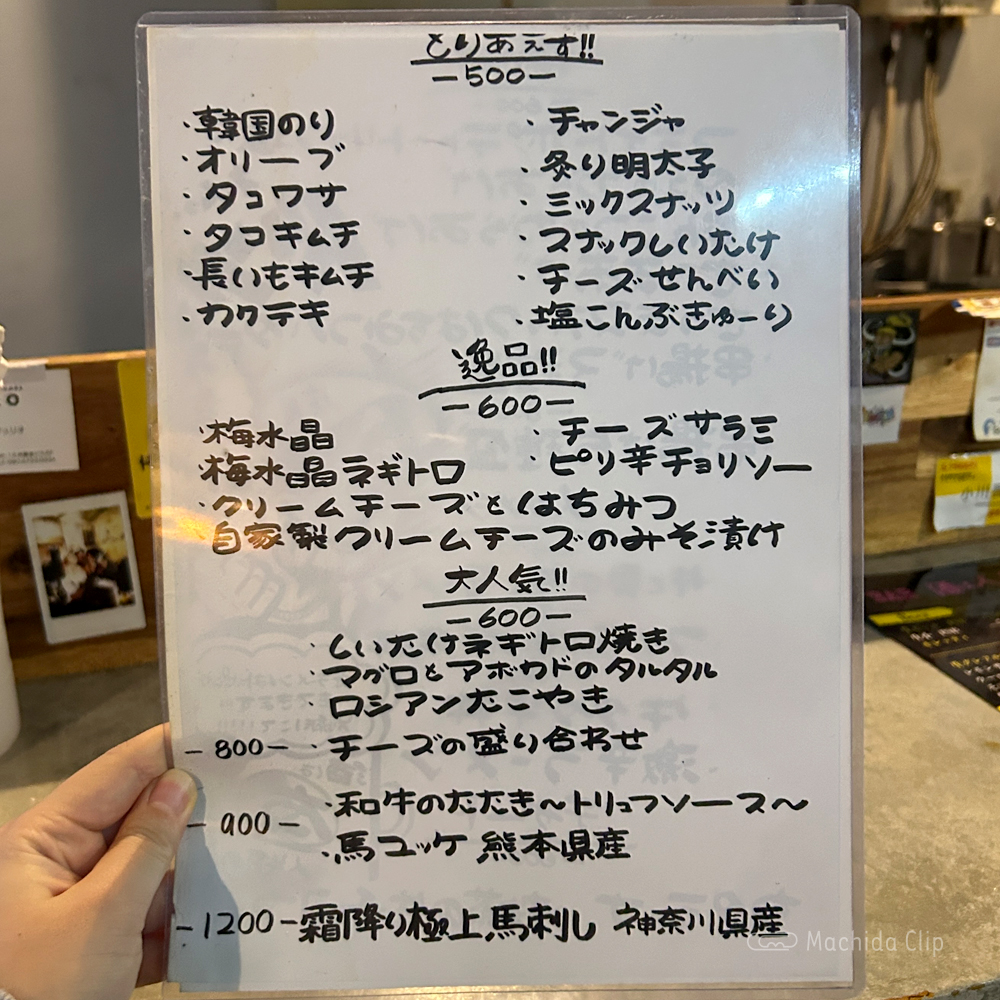 とりあえず!!
-500-
・韓国のり
・オリーブ
・タコワサ
・タコキムチ
・長いもキムチ
・カクテキ
・チャンジャ
・炙り明太子
・ミックスナッツ
・スナックしいたけ
・チーズせんべい
・塩こんぶきゅーり
逸品!!
-600-
・梅水晶
・チーズサラミ
・梅水晶ネギトロ
・ピリ辛チョリソー
・クリームチーズとはちみつ
・自家製クリームチーズのみそ漬け
大人気!!
-600-
・しいたけネギトロ焼き
・マグロとアボカドのタルタル
・ロシアンたこやき
-800-・チーズの盛り合わせ
-900-
・和牛のたたき~トリュフソース~
・馬ユッケ 熊本県産
-1200-霜降り極上馬刺し 神奈川県産
Machida Clip